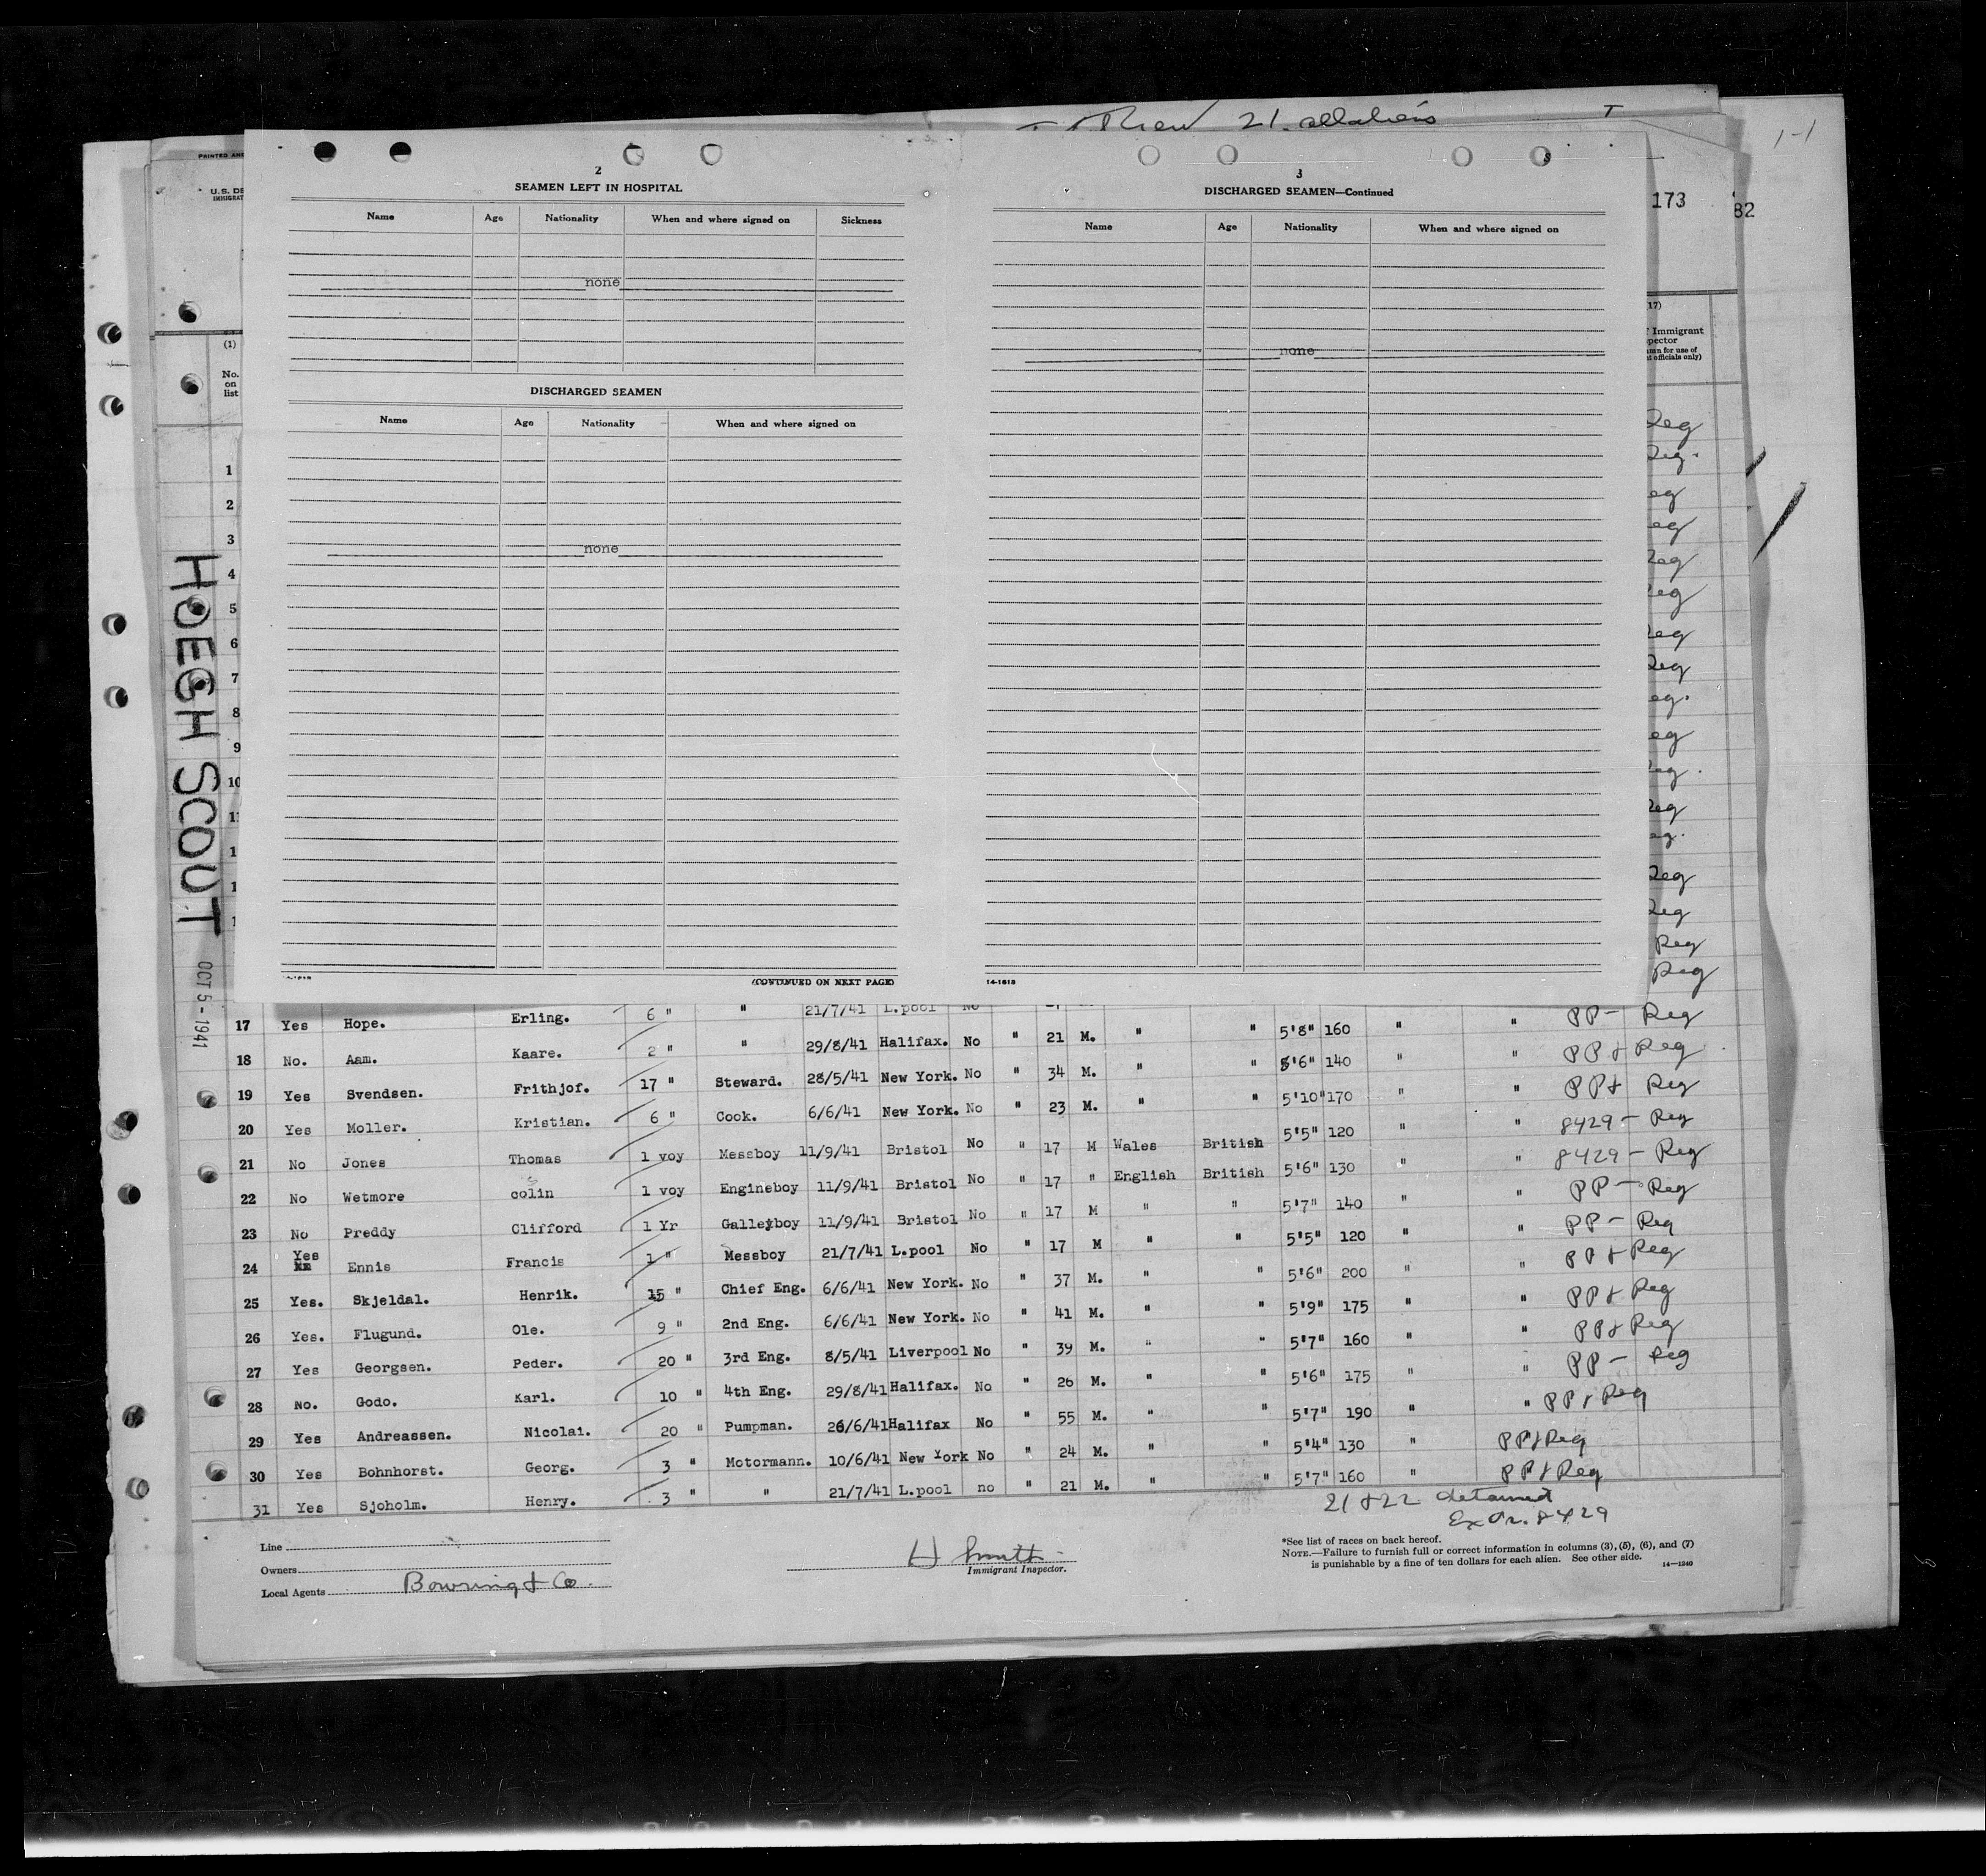 Crew 21. all aliens
1-1
PRINTED AND
U.S. DE
IMMIGRAT
173
82
2
SEAMEN LEFT IN HOSPITAL
Name Age Nationality When and where signed on Sickness
none
DISCHARGED SEAMEN
Name Age Nationality When and where signed on
none
14-1613
(CONTINUED ON NEXT PAGE)
3
DISCHARGED SEAMEN—Continued
Name Age Nationality When and where signed on
none
14-1613
(1)
No.
on
list
1
2
3
4
5
6
7
8
9
10
HOEGH SCOUT
OCT 5 - 1941
17)
f Immigrant
pector
mn for use of
t officials only)
Reg
Reg.
eg
eg
Reg
Reg
Reg
Reg
eg.
eg
eg.
Reg
eg.
Reg
Reg
Reg
Reg
17 Yes Hope. Erling. 6 " " 21/7/41 L.pool No PP- Reg
18 No. Aam. Kaare. 2 " " 29/8/41 Halifax. No " 21 M. " " 5'8" 160 " " PP & Reg
19 Yes Svendsen. Frithjof. 17 " Steward. 28/5/41 New York. No " 34 M. " " 5'6" 140 " " PP & Reg
20 Yes Moller. Kristian. 6 " Cook. 6/6/41 New York. No " 23 M. " " 5'10" 170 " " 8429 - Reg
21 No Jones Thomas 1 voy Messboy 11/9/41 Bristol No " 17 M Wales British 5'5" 120 " " 8429 - Reg
22 No Wetmore colin 1 voy Engineboy 11/9/41 Bristol No " 17 " English British 5'6" 130 " " PP - Reg
23 No Preddy Clifford 1 Yr Galleyboy 11/9/41 Bristol No " 17 M " " 5'7" 140 " " PP - Reg
24 Yes Ennis Francis 1 " Messboy 21/7/41 L.pool No " 17 M " " 5'5" 120 " " PP & Reg
25 Yes. Skjeldal. Henrik. 15 " Chief Eng. 6/6/41 New York. No " 37 M. " " 5'6" 200 " " PP & Reg
26 Yes. Flugund. Ole. 9 " 2nd Eng. 6/6/41 New York. No " 41 M. " " 5'9" 175 " " PP & Reg
27 Yes Georgsen. Peder. 20 " 3rd Eng. 8/5/41 Liverpool No " 39 M. " " 5'7" 160 " " PP - Reg
28 No. Godo. Karl. 10 " 4th Eng. 29/8/41 Halifax. No " 26 M. " " 5'6" 175 " " PP & Reg
29 Yes Andreassen. Nicolai. 20 " Pumpman. 26/6/41 Halifax No " 55 M. " " 5'7" 190 "
30 Yes Bohnhorst. Georg. 3 " Motormann. 10/6/41 New York No " 24 M. " " 5'4" 130 " PP & Reg
31 Yes Sjoholm. Henry. 3 " " 21/7/41 L.pool no " 21 M. " " 5'7" 160 " PP & Reg
21 & 22 detained
Ex Or. 8429
Line
Owners
Local Agents Bowring & Co.
H Smith
Immigrant Inspector.
*See list of races on back hereof.
NOTE.—Failure to furnish full or correct information in columns (3), (5), (6), and (7)
is punishable by a fine of ten dollars for each alien. See other side. 14—1240